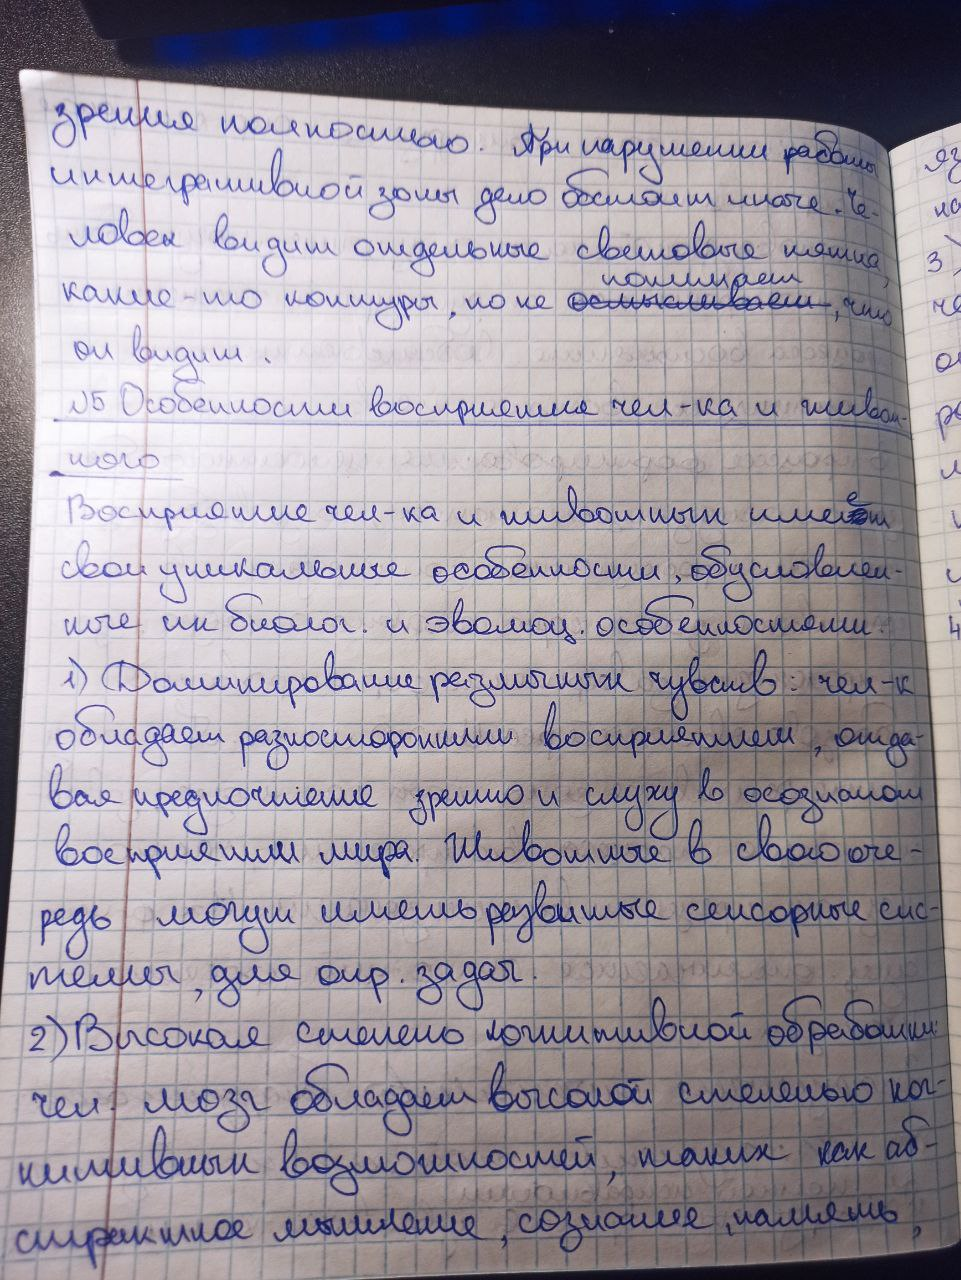 зрения полностью. При нарушении работы
интегративной зоны дело обстоит иначе. Че-
ловек видит отдельные световые пятна,
понимает
какие-то контуры, но не осмысливает, что
он видит.
№5 Особенности восприятия чел-ка и живот-
ного
Восприятие чел-ка и животных имеет
свои уникальные особенности, обусловлен-
ные их биолог. и эволюц. особенностями.
1) Доминирование различных чувств: чел-к
обладает разносторонним восприятием, отда-
вая предпочтение зрению и слуху в осознаном
восприятии мира. Животные в свою оче-
редь могут иметь развитые сенсорные сис-
темы, для опр. задач.
2) Высокая степень когнитивной обработки:
чел. мозг обладает высокой степенью ког-
нитивных возможностей, таких как аб-
страктное мышление, сознание, память,
яз
на
3)
че
ре
4